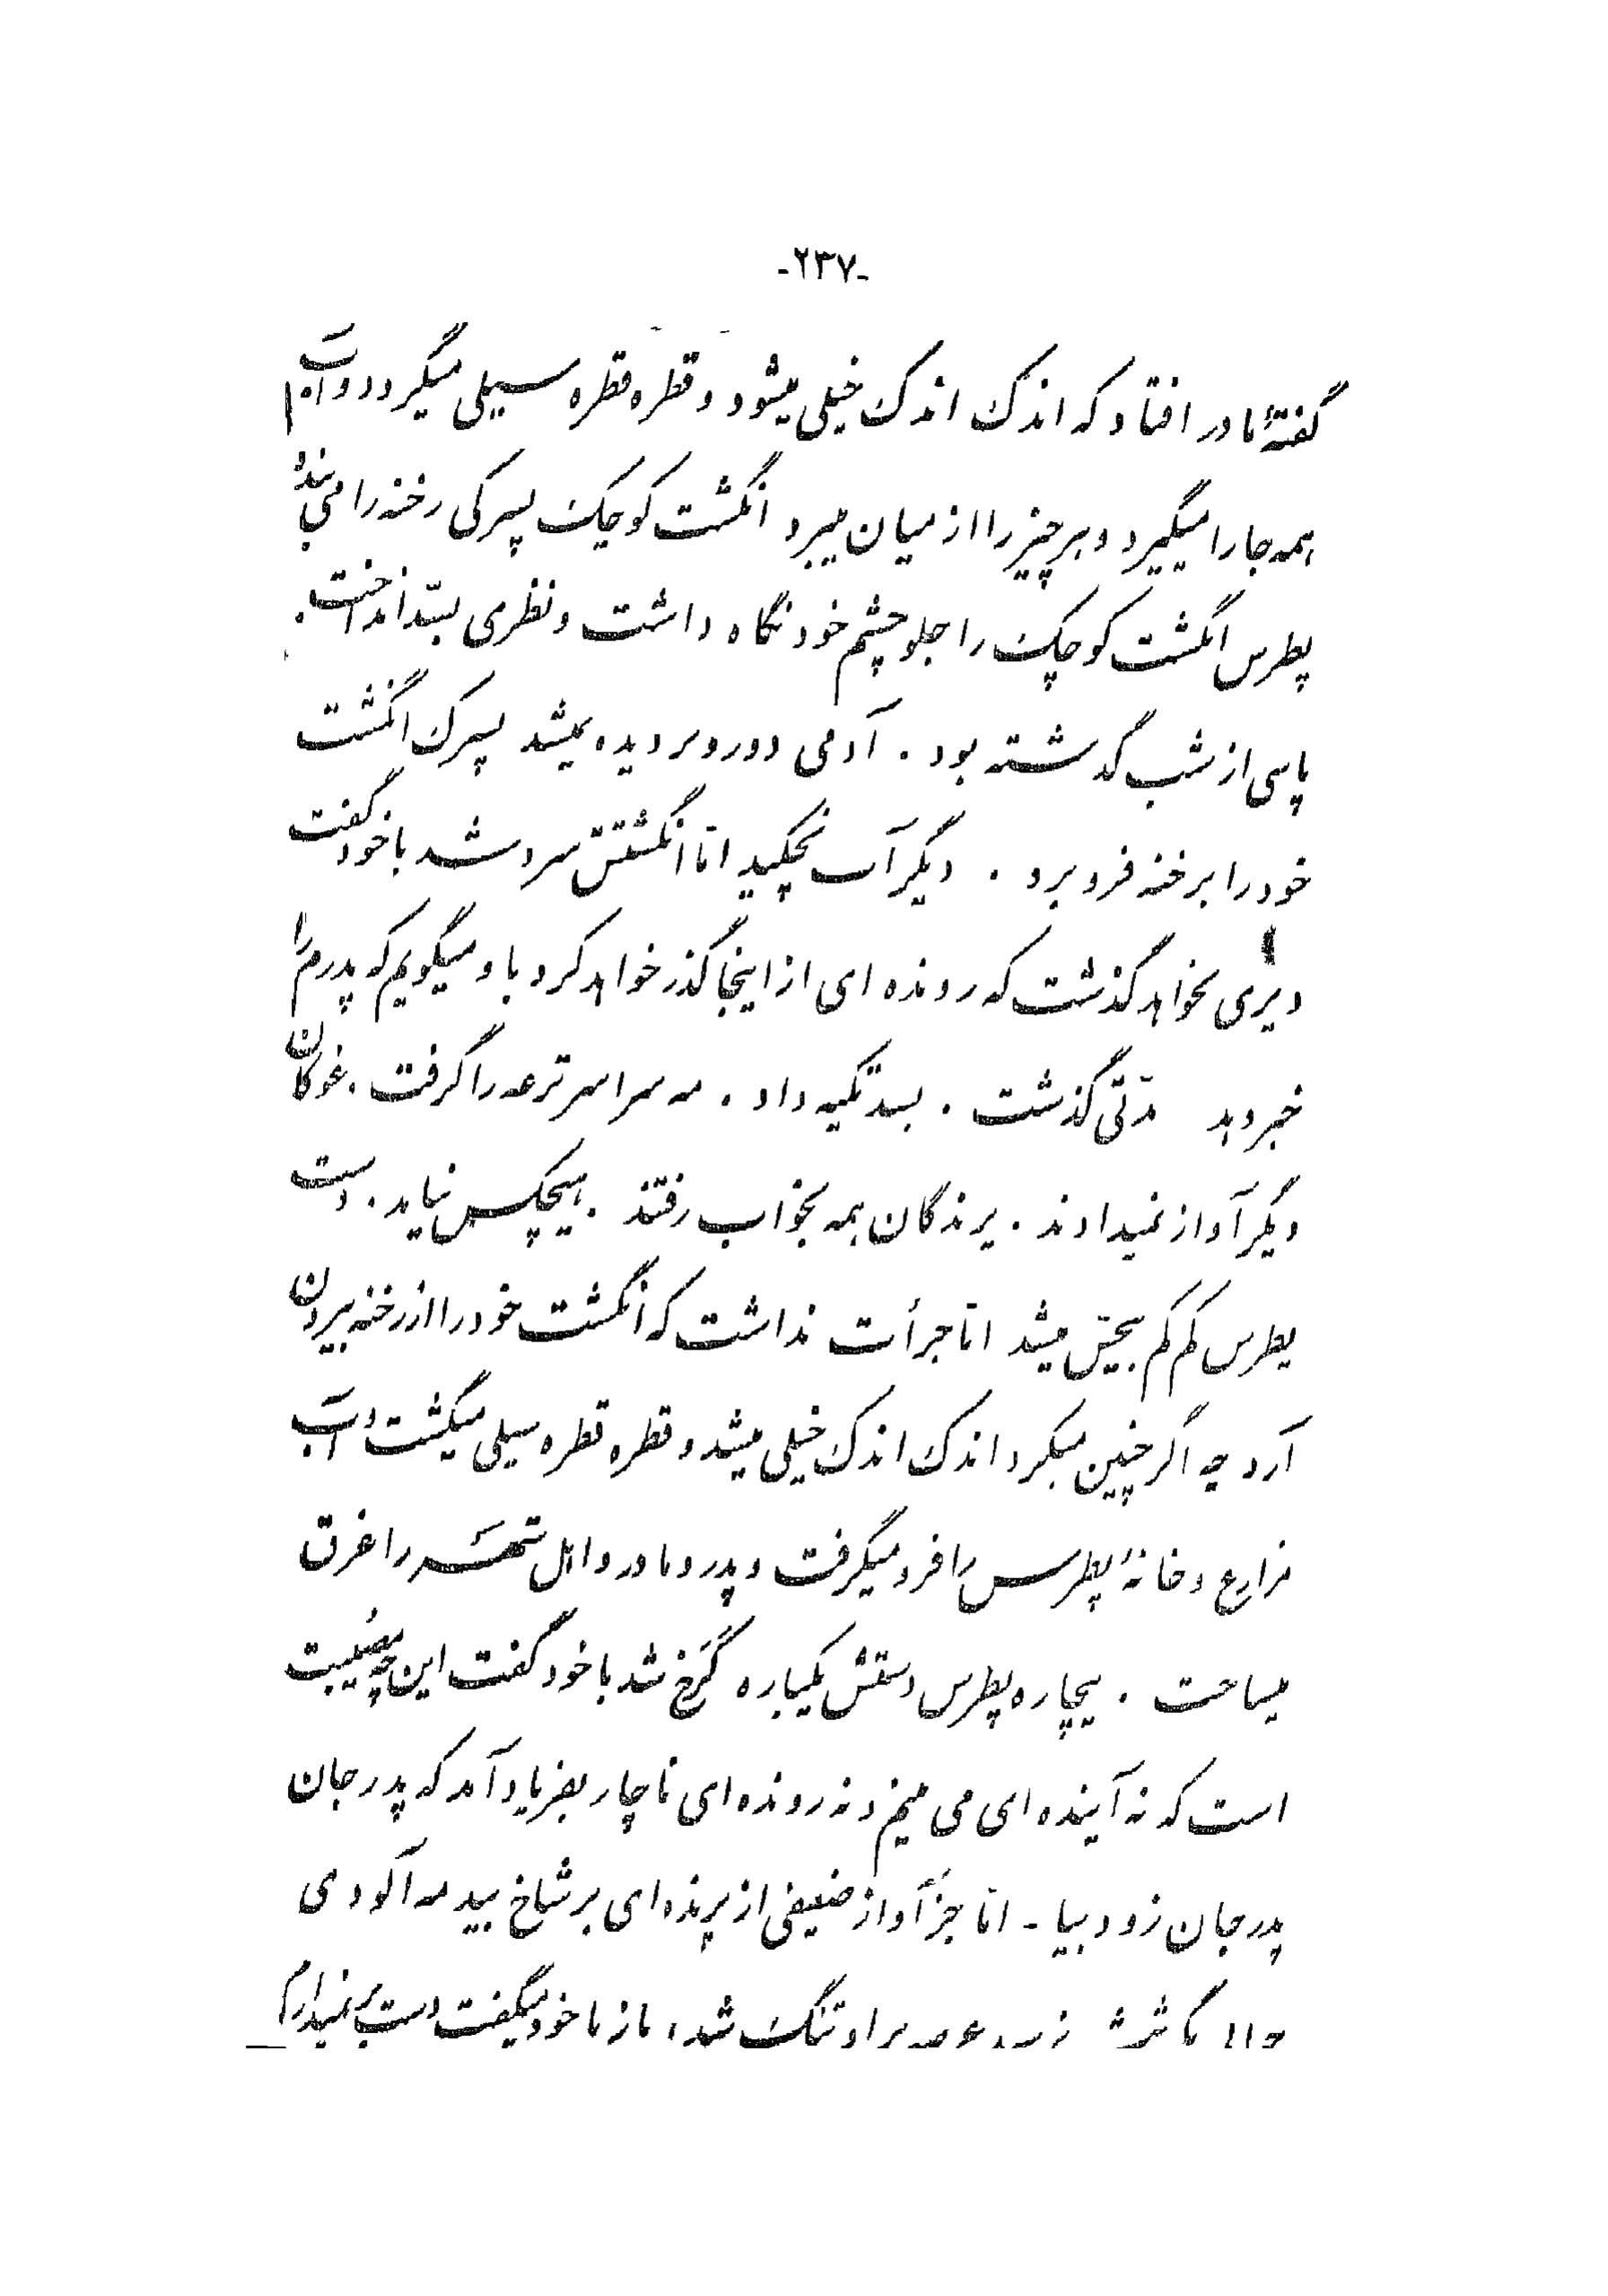 -۲۳۷-
گفتهٔ مادر افتاد که اندک اندک خیلی میشود و قطره قطره سیلی میگردد و آب
همه جا را میگیرد و هر چیز را از میان میبرد انگشت کوچک پسرکی رخنه را می بندد
پطرس انگشت کوچک را جلو چشم خود نگاه داشت و نظری بسد انداخت.
پاسی از شب گذشته بود. آدمی دور و بر دیده نمیشد پسرک انگشت
خود را برخنه فرو برد. دیگر آب نچکید امّا انگشتش سرد شد با خود گفت
دیری نخواهد گذشت که رونده ای از اینجا گذر خواهد کرد باو میگویم که پدرم را
خبر دهد مدّتی گذشت. بسد تکیه داد. مه سراسر ترعه را گرفت. غوکان
دیگر آواز نمیدادند. پرندگان همه بخواب رفتند. هیچکس نیامد. دست
پطرس کم کم بیحس میشد امّا جرأت نداشت که انگشت خود را از رخنه بیرون
آرد چه اگر چنین میکرد اندک اندک خیلی میشد و قطره قطره سیلی میگشت و آب
مزارع و خانهٔ پطرس را فرو میگرفت و پدر و مادر و اهل شهر را غرق
میساخت. بیچاره پطرس دستش یکباره کرخ شد با خود گفت این چه مصیبت
است که نه آینده ای می بینم و نه رونده ای ناچار بفریاد آمد که پدر جان
پدر جان زود بیا - امّا جز آواز ضعیفی از پرنده ای بر شاخ بید مه آلودی
عرصه بر او تنگ شد، باز با خود میگفت دست بر نمیدارم